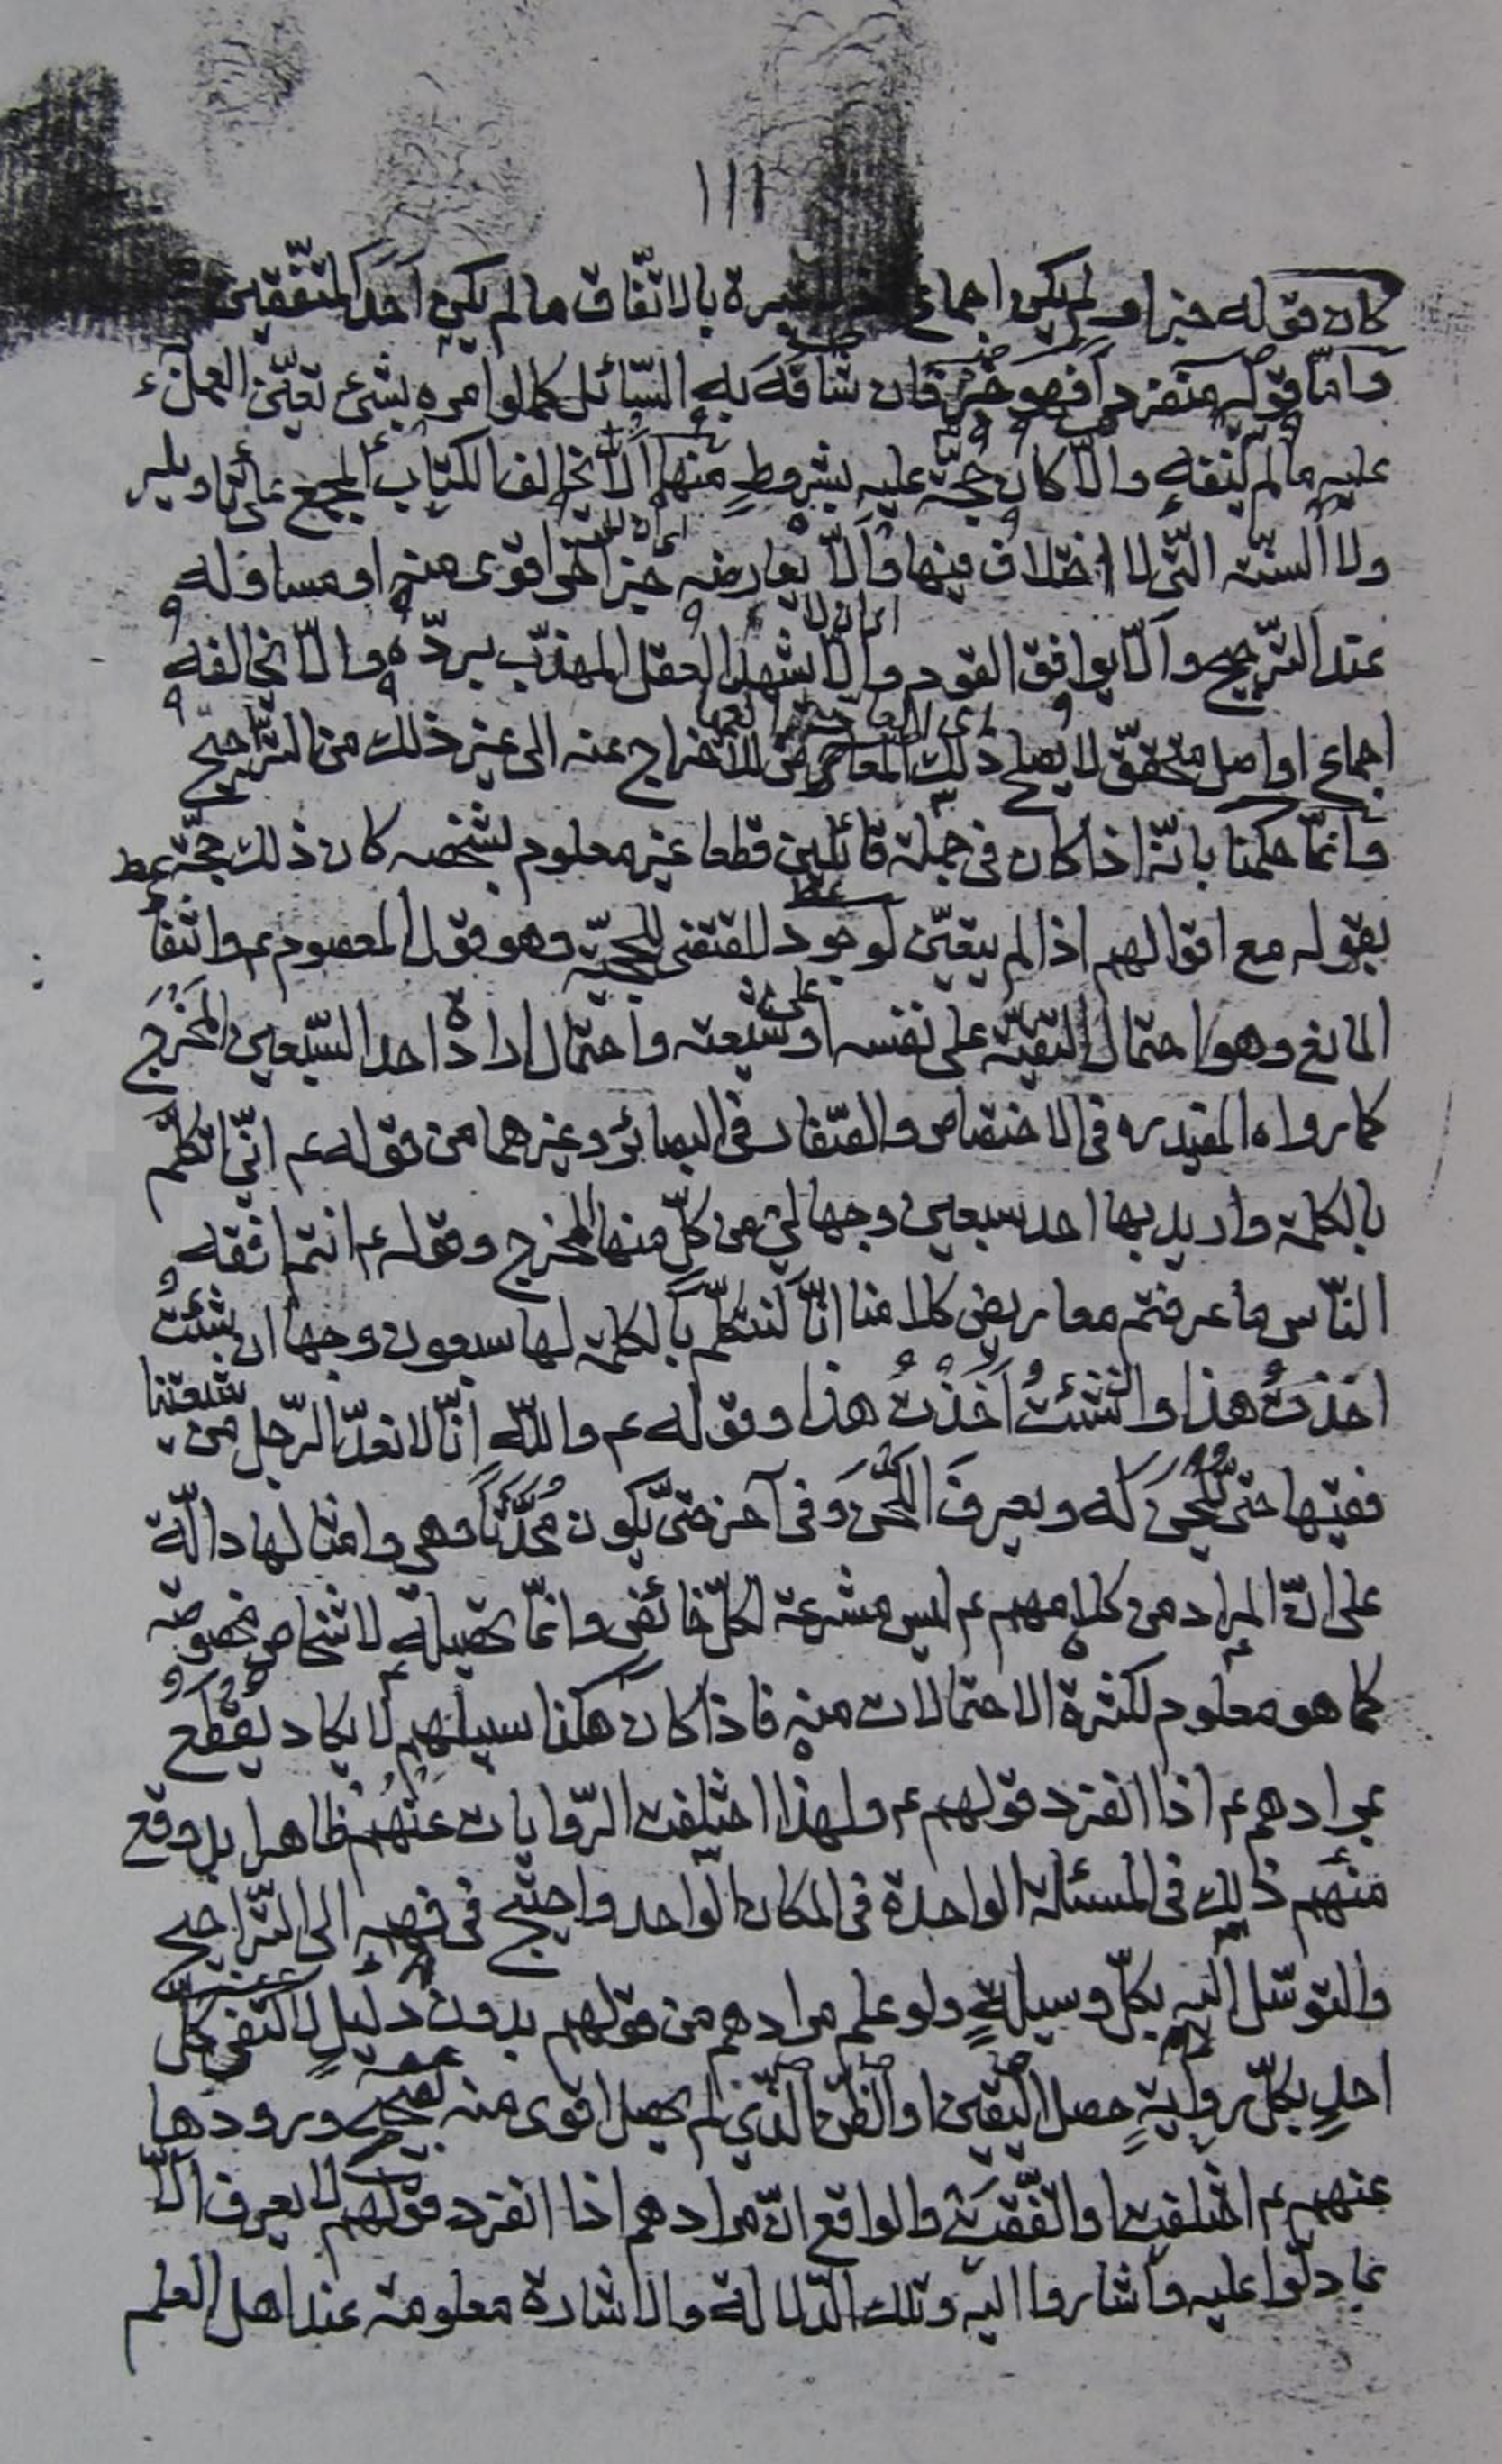 ١١١
كان قوله خبرا ولم يكن اجماع بالاتّفاق ما لم يكن احد المتّفقين
وامّا قوله منفردا فهو خبر فان شافه به السّائل كما لو امره بشئ تعيّن العمل
عليه ما لم ينفه والّا كان حجّة عليه بشروطٍ منها الّا يخالف الكتاب المجمع على تأويله
ولا السنّة الّتي لا اختلاف فيها والّا يعارضه خبر اخر اقوى منه او مساو له
عند التّرجيح والّا يوافق القوم والّا يشهد العقل المهذّب بردّه والّا يخالفه
اجماع او اصل محقّق لا يصلح ذلك المعارض للاخراج عنه الى غير ذلك من التّراجيح
وانّما حكمنا بانّه اذا كان في جملة قائلين قطعا غير معلوم بشخصه كان ذلك حجّة
بقوله مع اقوالهم اذا لم يتعيّن لوجود المقتضى للحجيّة وهو قول المعصوم ع وانتفا
المانع وهو احتمال التقيّة على نفسه او على شيعته واحتمال ارادة احد السّبعين المخرج
كما رواه المفيد ره في الاختصاص والصّفّار في البصائر وغيرهما من قوله ع انّي اتكلّم
بالكلمة واريد بها احد سبعين وجها لي من كلّ منها المخرج وقوله ع انتم افقه
النّاس ما عرفتم معاريض كلامنا انّا لنتكلّم بالكلمة لها سبعون وجها ان شئتُ
اخذتُ هذا وان شئتُ اخذتُ هذا وقوله ع والله انّا لا نعدّ الرّجل من شيعتنا
فقيها حتّى يلحن له ويعرف اللّحن وفي آخر حتّى يكون محدَّثا وهي وامثالها دالّة
على انّ المراد من كلامهم ع ليس مشرعة لكلّ خائض وانّما تحصيله لاشخاص مخصوصة
كما هو معلوم لكثرة الاحتمالات منه فاذا كان هكذا سبيلهم لا يكاد يقطع
بمرادهم ع اذا انفرد قولهم ع ولهذا اختلفت الرّوايات عنهم ظاهرا بل وقع
منهم ذلك في المسئلة الواحدة في المكان الواحد واحتيج في فهمه الى التّراجيح
والتوسّل اليه بكلّ وسيلةٍ ولو علم مرادهم من قولهم بدون دليلٍ لاكتفى كلّ
احدٍ بكلّ روايةٍ حصل اليقين او الظنّ الّذي لم يحصل اقوى منه بصحّة ورودها
عنهم ع اختلفت او اتّفقت والواقع انّ مرادهم اذا انفرد قولهم لا يعرف الّا
بما دلّوا عليه واشاروا اليه وتلك الدّلالة والاشارة معلومة عند اهل العلم